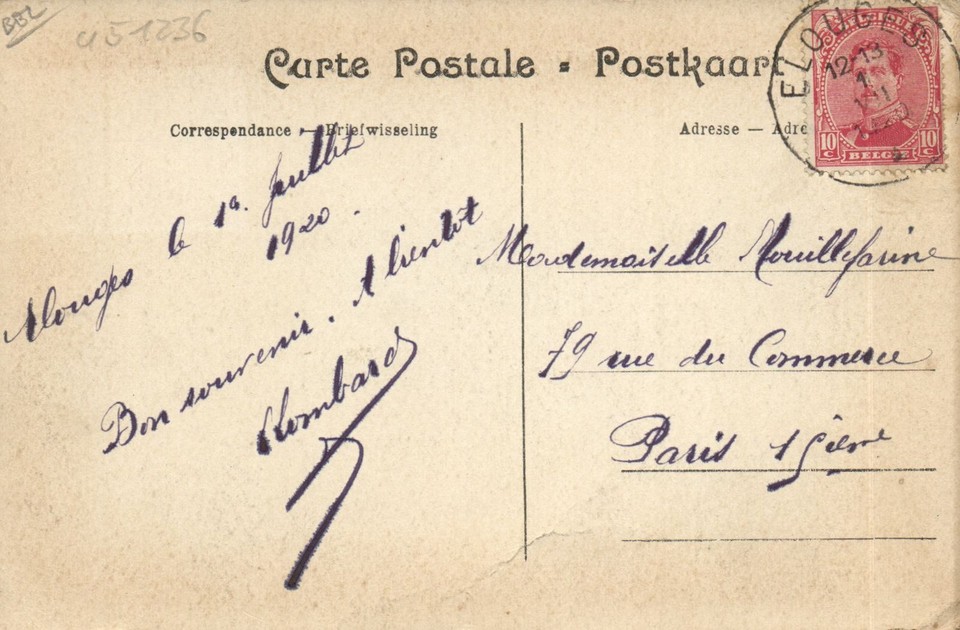 BEL
451236
Carte Postale - Postkaart
Correspondance - Briefwisseling
Adresse —
ELOUGES
12-13
10 c BELGIË 10 c
Elouges le 1er Juillet
1920.
Bon souvenir. A bientôt
Lombard
Mademoiselle Mouillefarine
79 rue du Commerce
Paris 15ième